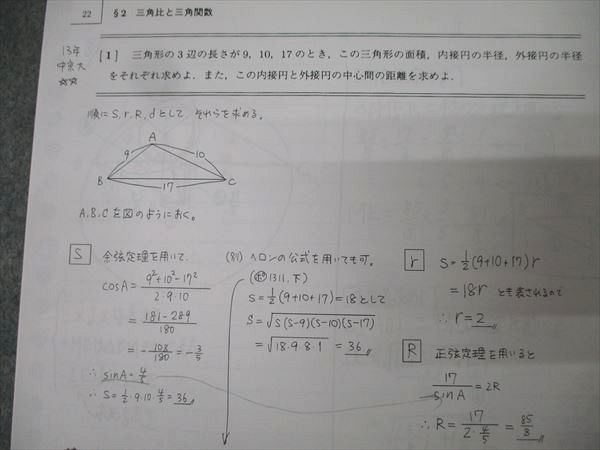 22 §2 三角比と三角関数
13年
中京大
☆☆
[1] 三角形の3辺の長さが9,10,17のとき,この三角形の面積,内接円の半径,外接円の半径
をそれぞれ求めよ.また,この内接円と外接円の中心間の距離を求めよ.
順にS,r,R,dとして,それらを求める。
A
9 10
B C
17
A,B,Cを図のようにおく。
S 余弦定理を用いて、
cosA = (9²+10²-17²)/(2・9・10)
= (181-289)/180
= -108/180 = -3/5
∴ sinA = 4/5
∴ S = 1/2・9・10・4/5 = 36
(別) ヘロンの公式を用いても可。
1311.下)
s = 1/2(9+10+17) = 18 として
S = √(s(s-9)(s-10)(s-17))
= √(18・9・8・1) = 36
r S = 1/2(9+10+17)r
= 18r とも表されるので
∴ r = 2
R 正弦定理を用いると
17/sinA = 2R
∴ R = 17/(2・4/5) = 85/8